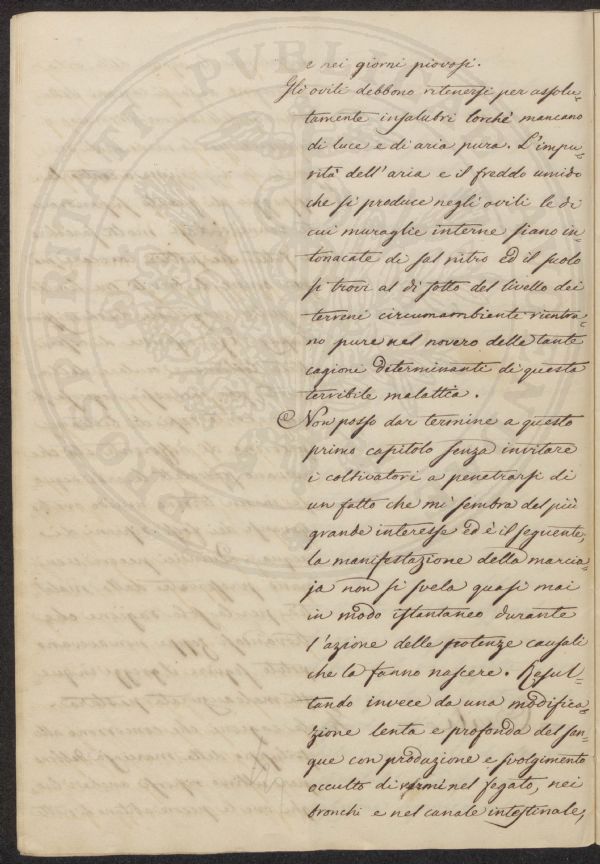 e nei giorni piovosi.
Gli ovili debbono ritenersi per assolu-
tamente insalubri lorchè mancano
di luce e di aria pura. L'impu-
rità dell'aria e il freddo umido
che si produce negli ovili le di
cui muraglie interne siano in-
tonacate di sal nitro ed il suolo
si trovi al di sotto del livello dei
terreni circumambiente rientra-
no pure nel novero delle tante
cagione determinanti di questa
terribile malattia.
Non posso dar termine a questo
primo capitolo senza invitare
i coltivatori a penetrarsi di
un fatto che mi sembra del più
grande interesse ed è il seguente,
la manifestazione della marcia-
ja non si svela quasi mai
in modo istantaneo durante
l'azione delle potenze causali
che la fanno nascere. Resul-
tando invece da una modifica-
zione lenta e profonda del san-
gue con produzione e svolgimento
occulto di vermi nel fegato, nei
bronchi e nel canale intestinale,